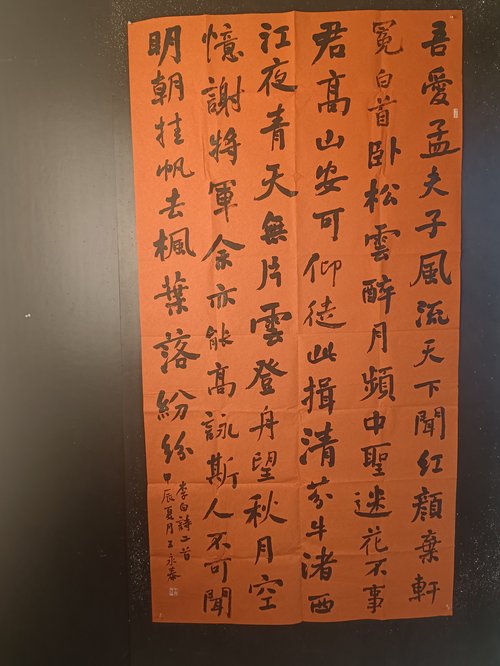 吾愛孟夫子風流天下聞紅顏棄軒
冕白首卧松雲醉月頻中聖迷花不事
君高山安可仰徒此揖清芬牛渚西
江夜青天無片雲登舟望秋月空
憶謝將軍余亦能高詠斯人不可聞
明朝挂帆去楓葉落紛紛
李白詩二首
甲辰夏月王永